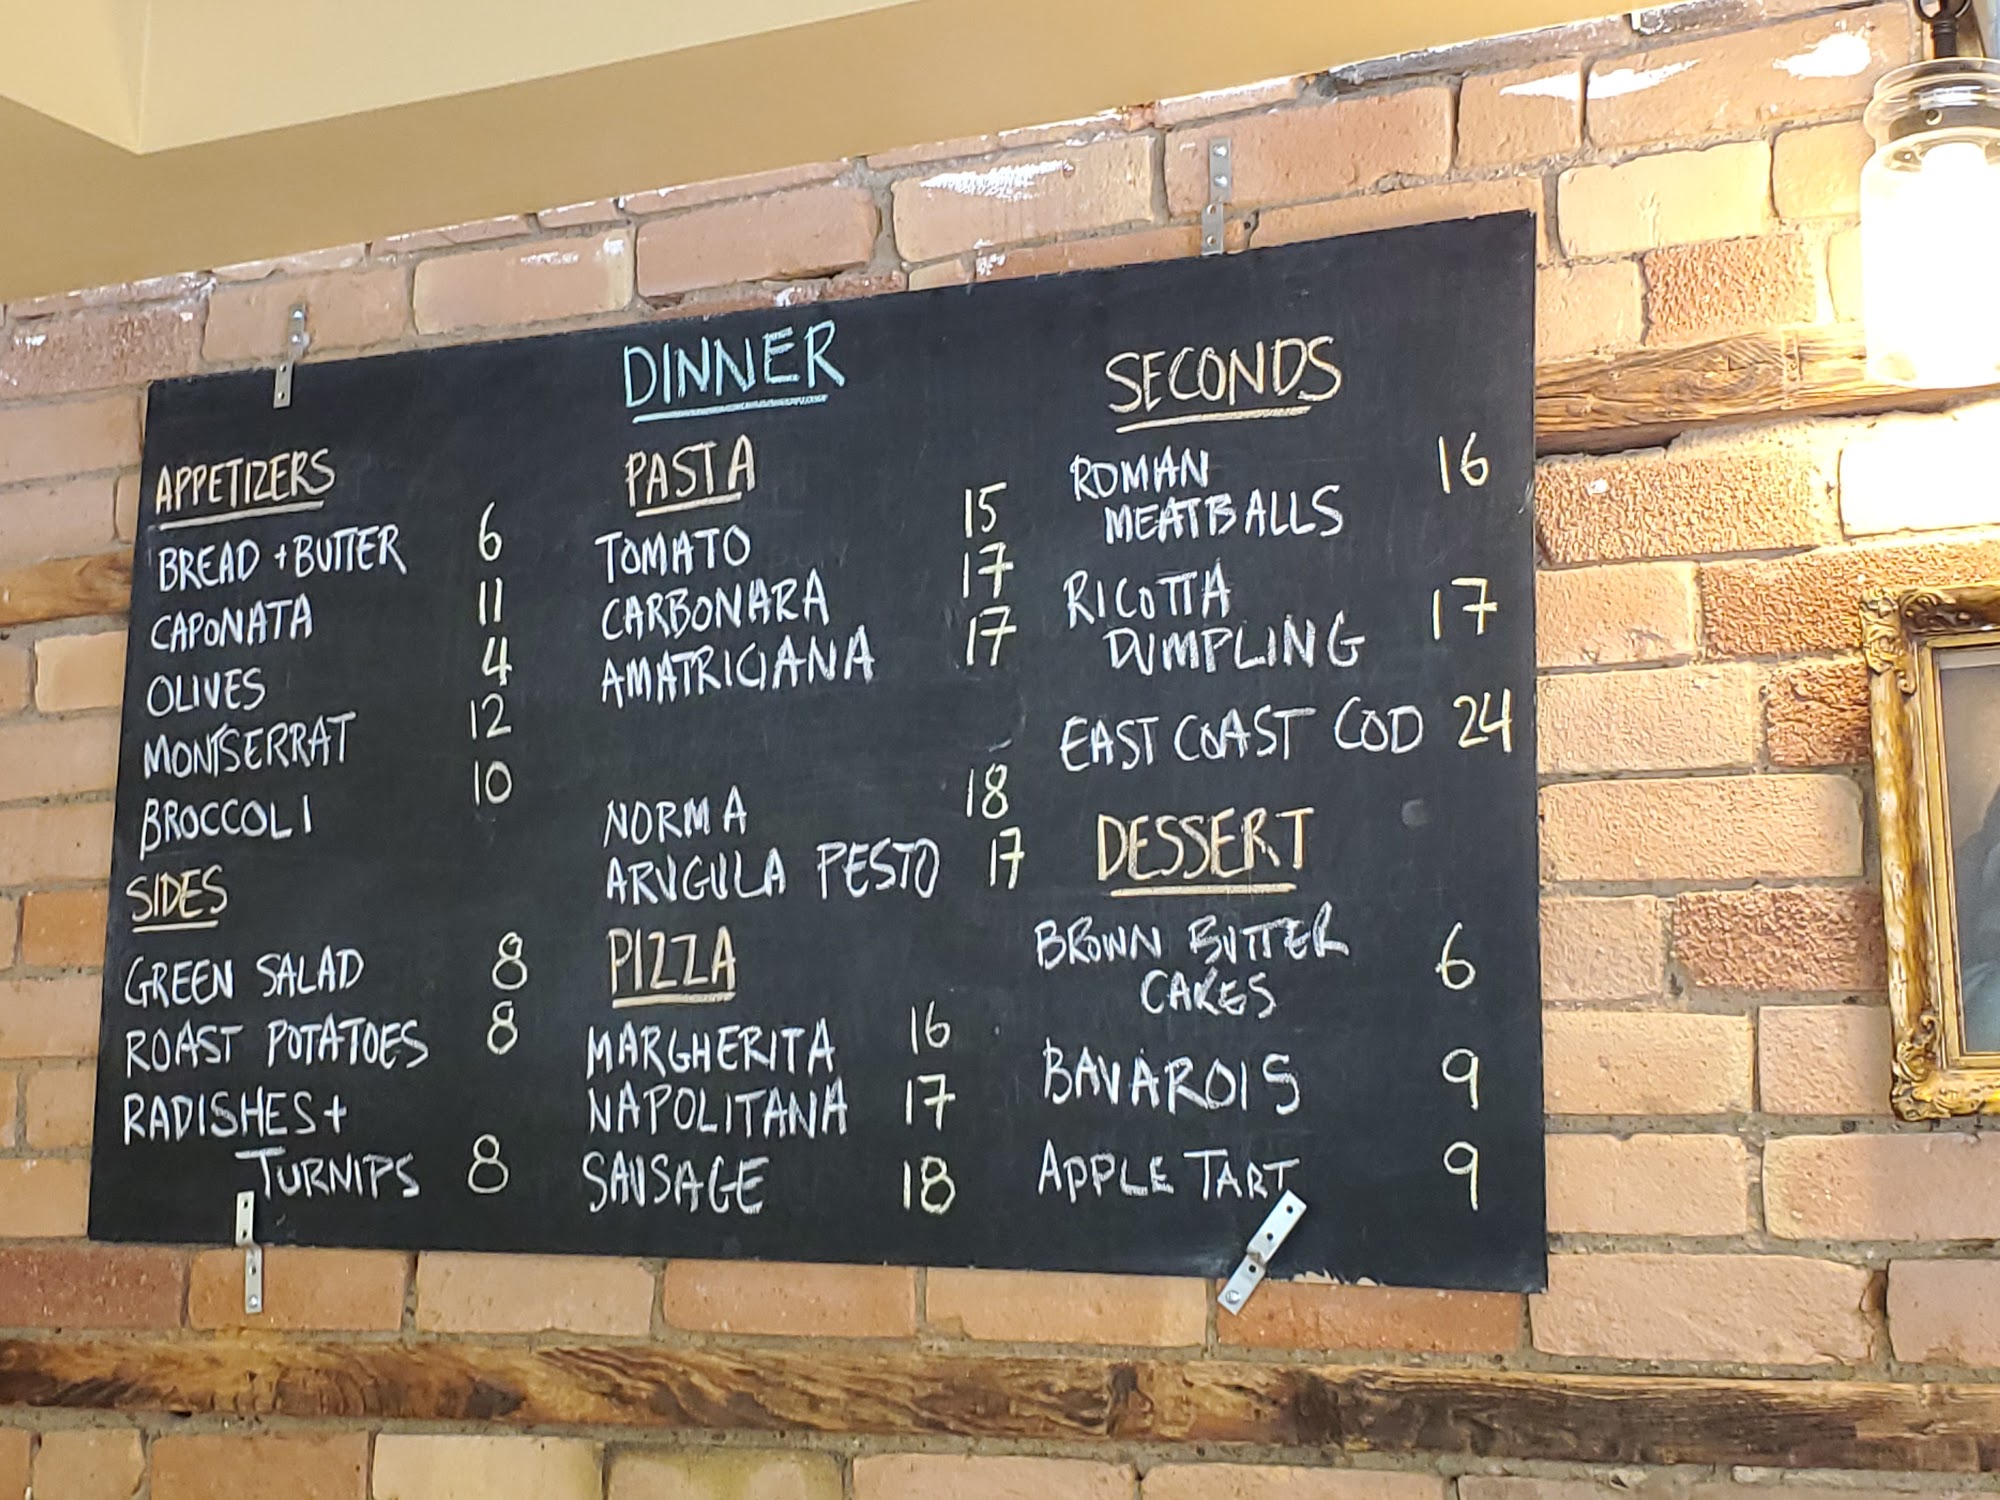 DINNER
APPETIZERS
BREAD + BUTTER 6
CAPONATA 11
OLIVES 4
MONTSERRAT 12
BROCCOLI 10
SIDES
GREEN SALAD 8
ROAST POTATOES 8
RADISHES +
TURNIPS 8
PASTA
TOMATO 15
CARBONARA 17
AMATRICIANA 17
NORMA 18
ARUGULA PESTO 17
PIZZA
MARGHERITA 16
NAPOLITANA 17
SAUSAGE 18
SECONDS
ROMAN 16
MEATBALLS
RICOTTA 17
DUMPLING
EAST COAST COD 24
DESSERT
BROWN BUTTER 6
CAKES
BAVAROIS 9
APPLE TART 9